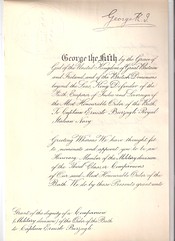 George R.I.
George the Fifth by the Grace of
God of the United Kingdom of Great Britain
and Ireland and of the British Dominions
beyond the Seas King Defender of the
Faith Emperor of India and Sovereign of
the Most Honorable Order of the Bath
To Captain Ernesto Burzagli Royal
Italian Navy
Greeting Whereas We have thought fit
to nominate and appoint you to be an
Honorary Member of the Military Division
of the Third Class or Companions
of Our said Most Honorable Order of the
Bath We do by these Presents grant unto
Grant of the dignity of a Companion
(Military Division) of the Order of the Bath
to Captain Ernesto Burzagli